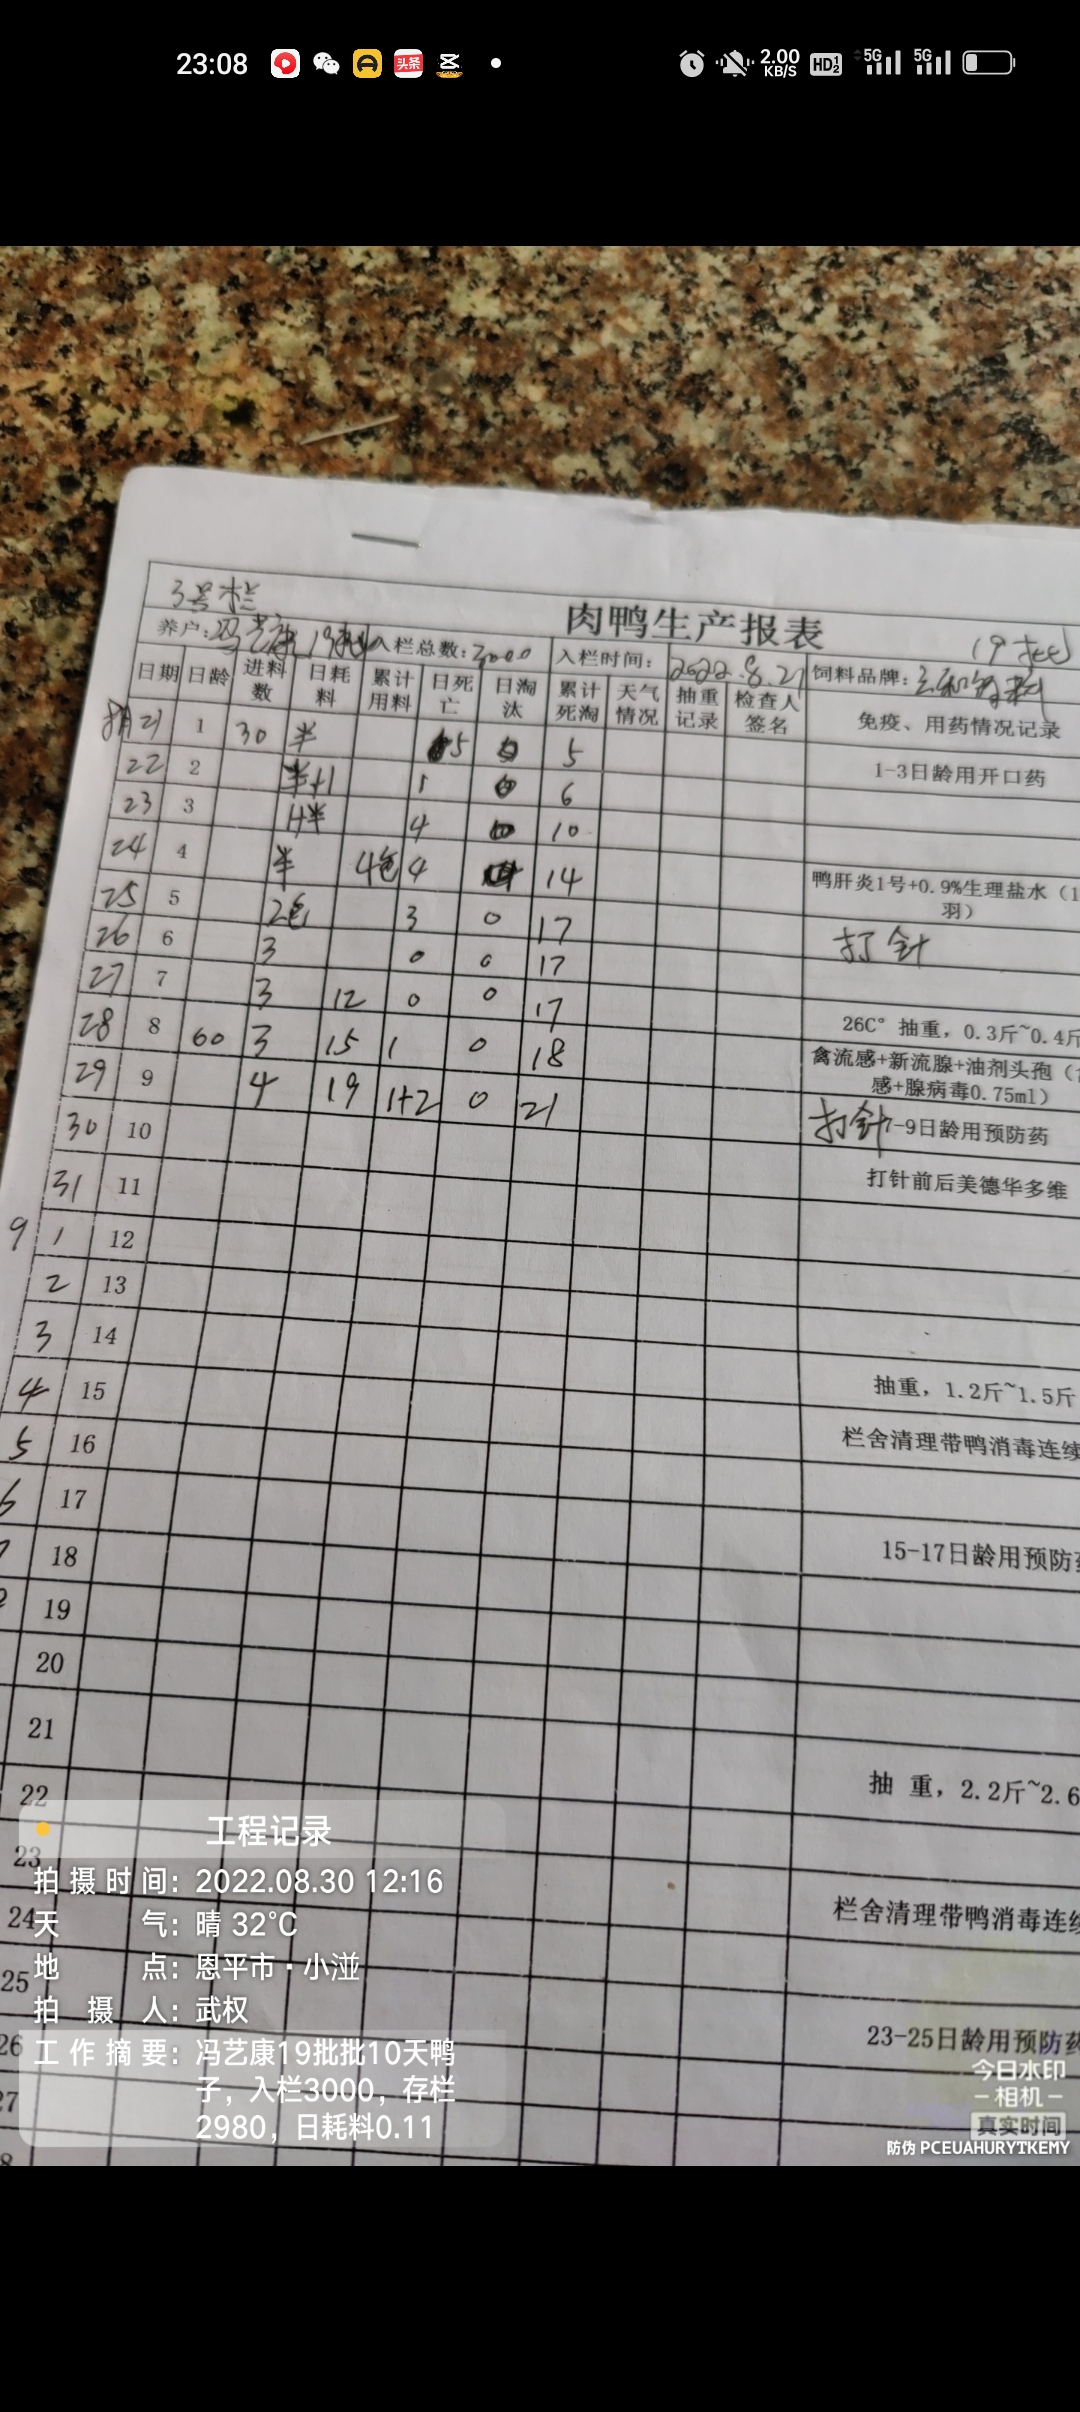 23:08
头条
2.00 KB/S HD 5G 5G
3号栏
肉鸭生产报表
养户：冯艺康 19批 入栏总数：3000 入栏时间：2022.8.21 饲料品牌：
19批
日期 日龄 进料数 日耗料 累计用料 日死亡 日淘汰 累计死淘 天气情况 抽重记录 检查人签名 免疫、用药情况记录
21 1 30 半 5 5
1-3日龄用开口药
22 2 半+1 1 6
23 3 4 10
24 4 半 4包 4 14
鸭肝炎1号+0.9%生理盐水（1
羽）
25 5 2包 3 0 17
打针
26 6 3 0 0 17
27 7 3 12 0 0 17
26C° 抽重，0.3斤~0.4斤
28 8 60 3 15 1 0 18
禽流感+新流腺+油剂头孢（
感+腺病毒0.75ml）
29 9 4 19 1+2 0 21
打针 -9日龄用预防药
30 10
31 11
打针前后美德华多维
9 1 12
2 13
3 14
4 15
抽重，1.2斤~1.5斤
5 16
栏舍清理带鸭消毒连续
6 17
7 18
15-17日龄用预防药
19
20
21
22
抽 重，2.2斤~2.6
23
24
栏舍清理带鸭消毒连续
25
26
23-25日龄用预防药
27
8
工程记录
拍摄时间：2022.08.30 12:16
天 气：晴 32℃
地 点：恩平市·小湴
拍 摄 人：武权
工作摘要：冯艺康19批批10天鸭
子，入栏3000，存栏
2980，日耗料0.11
今日水印
-相机-
真实时间
防伪 PCEUAHURYTKEMY